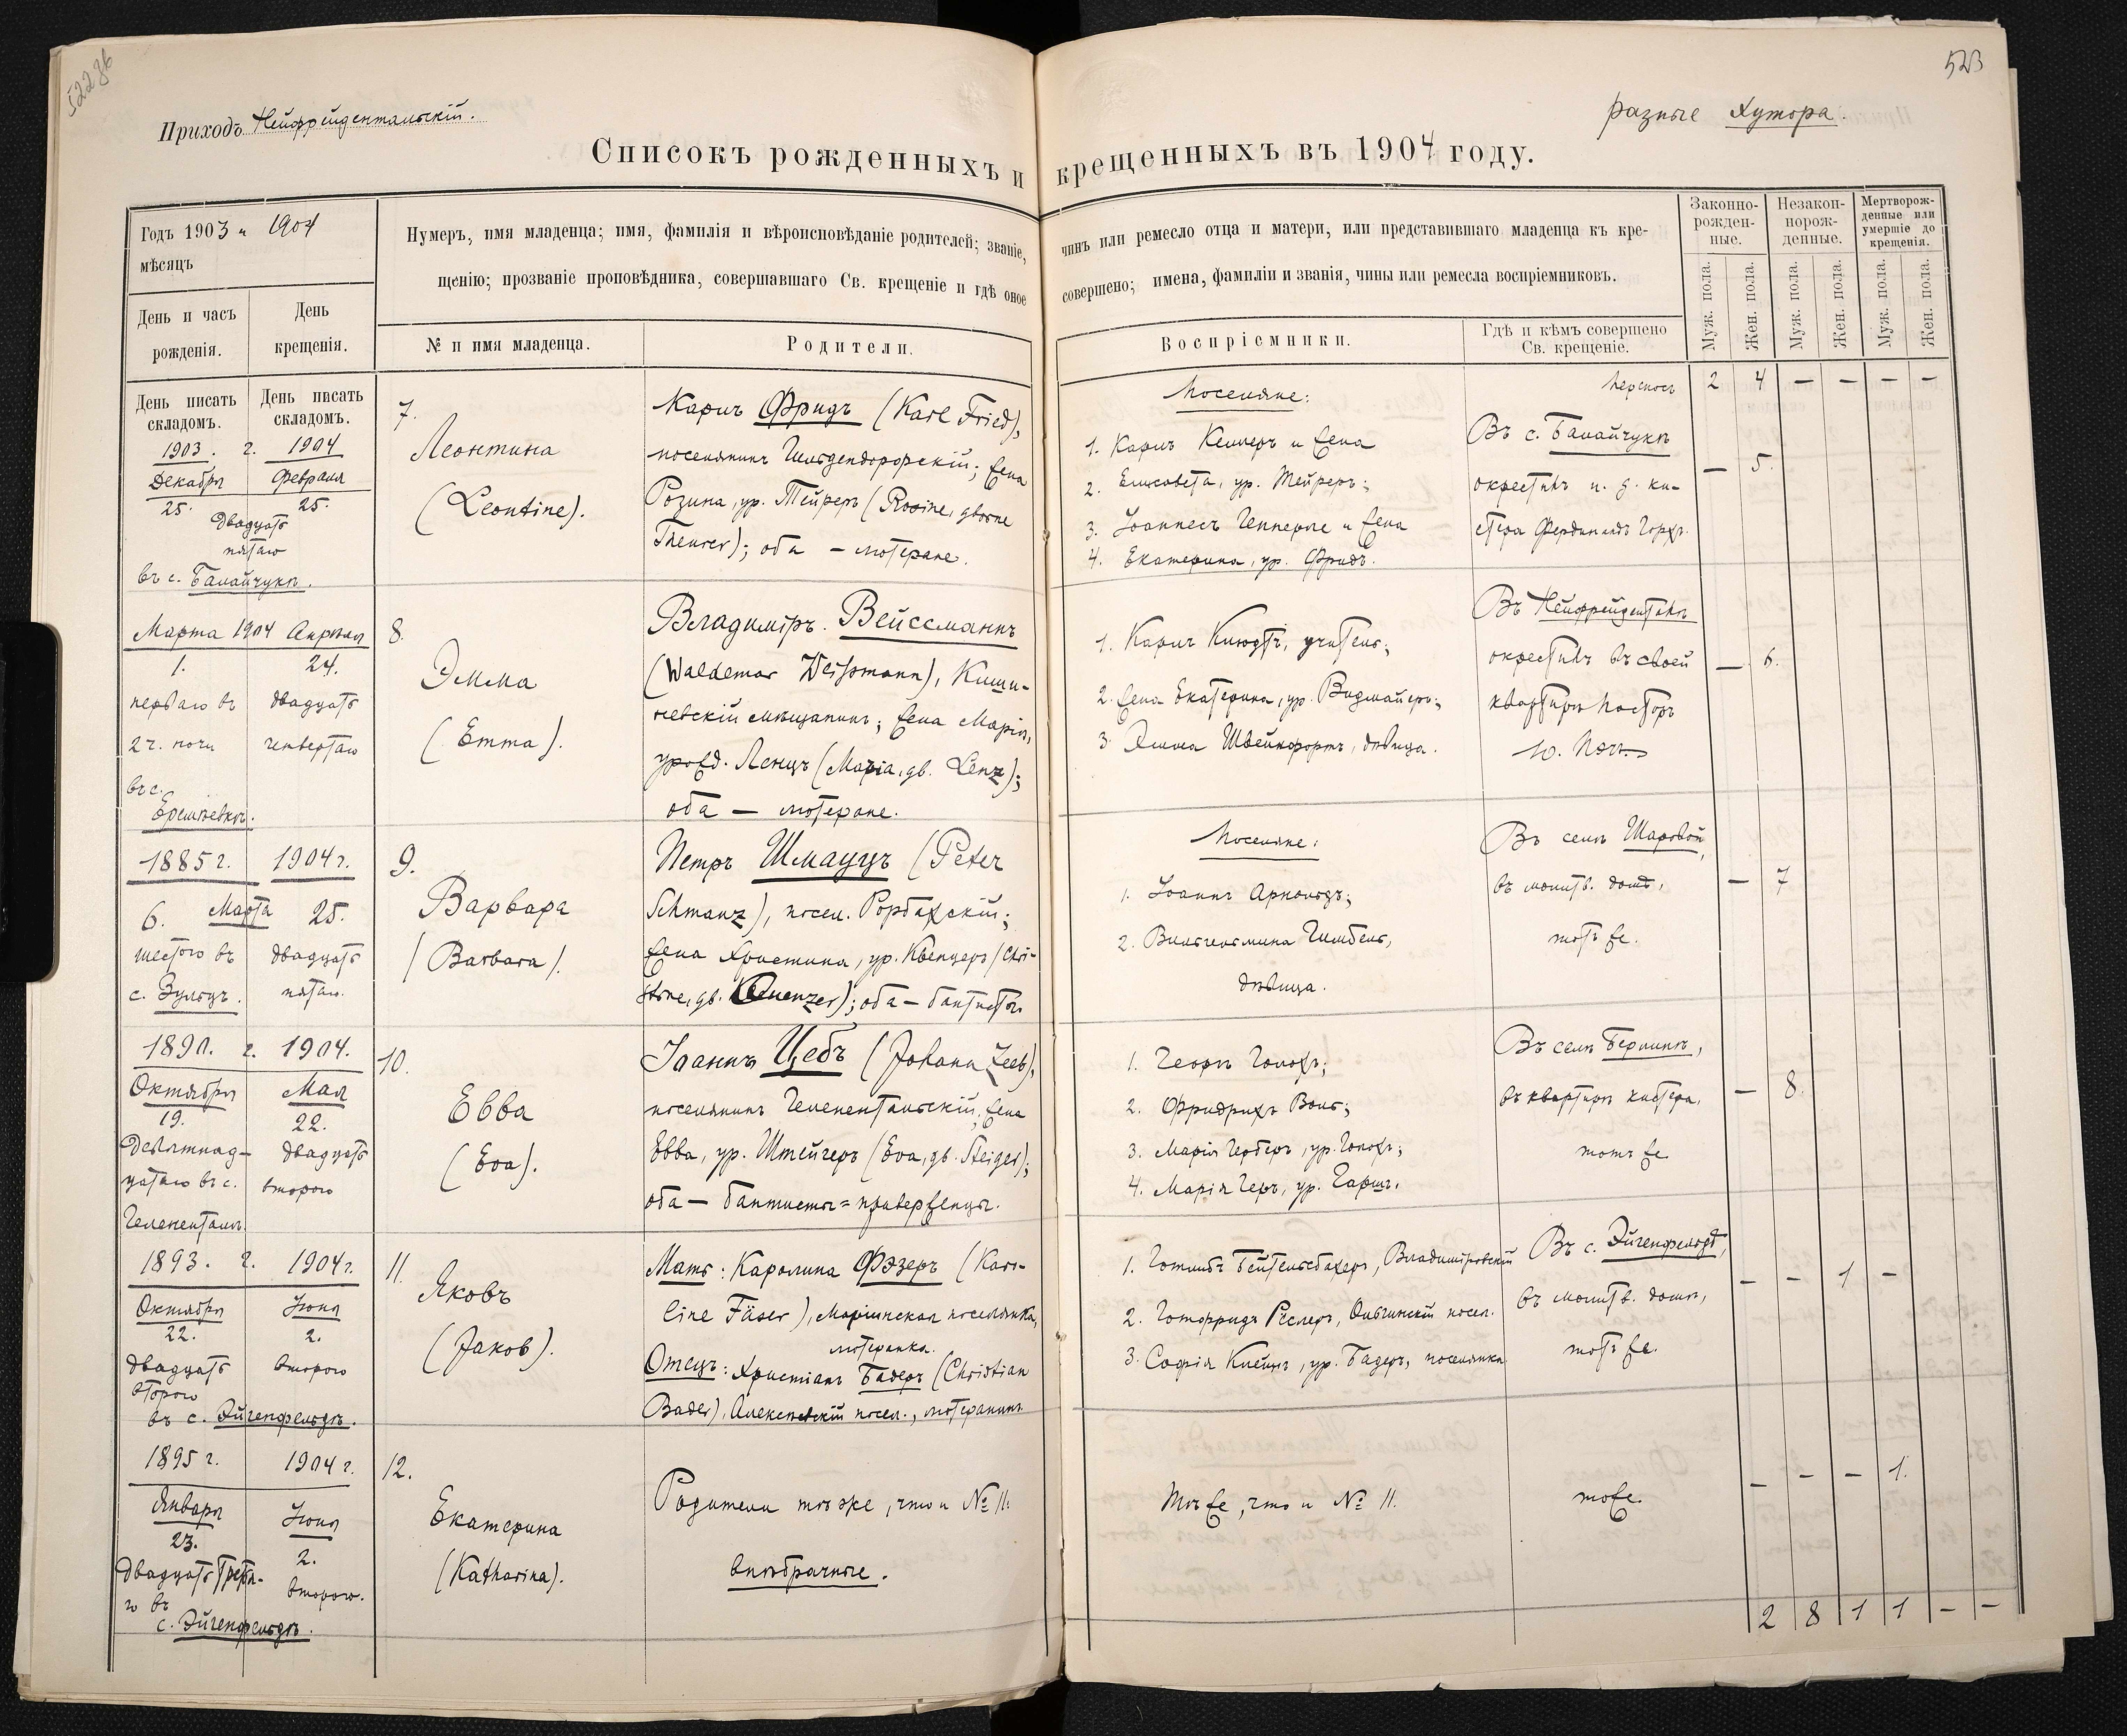 522 об
523
Приходъ Нейфрейдентальскій.
Разные Хутора.
Списокъ рожденныхъ и крещенныхъ въ 1904 году.
Годъ 1903 и 1904
мѣсяцъ
День и часъ
рожденія.
День
крещенія.
Нумеръ, имя младенца; имя, фамилія и вѣроисповѣданіе родителей; званіе,
щенію; прозваніе проповѣдника, совершавшаго Св. крещеніе и гдѣ оное
№ и имя младенца.
Родители.
чинъ или ремесло отца и матери, или представившаго младенца къ кре-
совершено; имена, фамиліи и званія, чины или ремесла воспріемниковъ.
Воспріемники.
Гдѣ и кѣмъ совершено
Св. крещеніе.
Законно-
рожден-
ные.
Незакон-
норож-
денные.
Мертворож-
денные или
умершіе до
крещенія.
Муж. пола.
Жен. пола.
Муж. пола.
Жен. пола.
Муж. пола.
Жен. пола.
День писать
складомъ.
День писать
складомъ.
1903. г. 1904
Декабря
Февраля
25.
25.
Двадцать
пятаго
въ с. Балайчукѣ.
7.
Леонтина
(Leontine).
Карлъ Фридъ (Karl Fried),
поселянинъ Гильдендорфскій; жена
Розина, ур. Тейреръ (Rosine, gborne
Theurer); оба — лютеране.
Поселяне:
1. Карлъ Келлеръ и жена
2. Елисавета, ур. Тейреръ;
3. Іоаннесъ Геннерле и жена
4. Екатерина, ур. Фридъ.
Переносъ
Въ с. Балайчукѣ
окрестилъ и. д. ки-
стера Фердинандъ Горхъ.
2 4 — — — —
— 5.
Марта 1904 Апрѣля
1.
24.
перваго въ
2 ч. ночи
двадцать
четвертаго
въ с.
Еремѣевкѣ.
8.
Эмма
(Emma).
Владиміръ Вейссманнъ
(Waldemar Weißmann), Киши-
невскій мѣщанинъ; жена Марія,
урожд. Ленцъ (Maria, gb. Lenz);
оба — лютеране.
1. Карлъ Кнюдтъ, учитель;
2. жена Екатерина, ур. Видмайеръ;
3. Эмма Швейкфортъ, дѣвица.
Въ Нейфрейденталѣ
окрестилъ въ своей
квартирѣ Пасторъ
— 6.
1885 г. 1904 г.
6. Марта 25.
шестого въ
с. Зульцъ.
двадцать
пятаго.
9.
Варвара
(Barbara).
Петръ Шмауцъ (Peter
Schmauz), посел. Рорбахскій;
жена Христина, ур. Квенцеръ (Chri-
stine, gb. Quenzer); оба — баптисты
Поселяне:
1. Іоаннъ Арнольдъ;
2. Вильгельмина Гимбель,
дѣвица.
Въ селѣ Шаровой,
въ молитв. домѣ,
тотъ же.
— 7
1890. г. 1904.
Октября
Мая
19.
22.
Девятнад-
цатаго въ с.
Геленентали.
двадцать
второго
10.
Евва
(Eva).
Іоаннъ Цебъ (Johann Zeeb),
поселянинъ Геленентальскій, жена
Евва, ур. Штейгеръ (Eva, gb. Steiger);
оба — баптисты=приверженцы.
1. Георгъ Голохъ;
2. Фридрихъ Воль;
3. Марія Герберъ, ур. Голохъ;
4. Марія Геръ, ур. Гаршъ.
Въ селѣ Берлинѣ,
въ квартирѣ кистера,
тотъ же
— 8.
1893. г. 1904 г.
Октября
Іюня
22.
2.
двадцать
второго
второго
въ с. Эйгенфельдѣ.
11.
Яковъ
(Jakob).
Мать: Каролина Фэзеръ (Karo-
line Fäser), Маріинская поселянка,
лютеранка.
Отецъ: Христіанъ Бадеръ (Christian
Bader), Алексѣевскій посел., лютеранинъ
1. Готлибъ Бейтельсбахеръ, Владиміровскій
2. Готфридъ Реслеръ, Ольгинскій посел.
3. Софія Клеинъ, ур. Бадеръ, поселянка
Въ с. Эйгенфельдѣ,
въ молитв. домѣ,
тотъ же.
— — 1 —
1895 г. 1904 г.
Января
Іюня
23.
2.
двадцать третья-
го въ
второго.
с. Эйгенфельдѣ.
12.
Екатерина
(Katharina).
Родители тѣ же, что и № 11.
внѣбрачные.
Тѣ же, что и № 11.
тоже
— — — 1.
2 8 1 1 — —